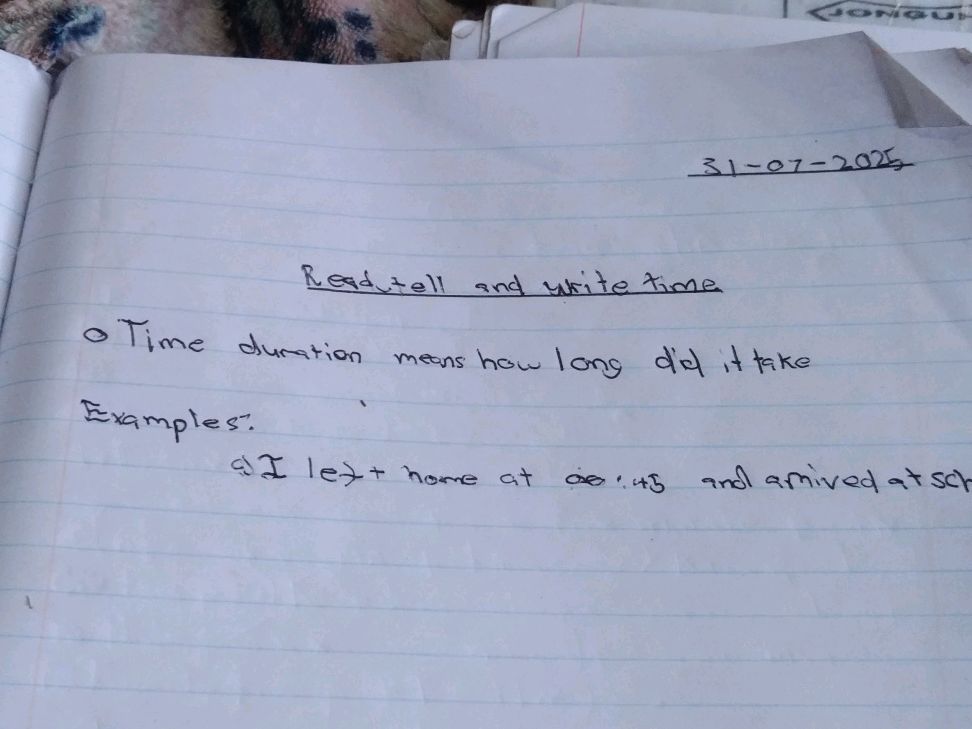 JONGUN
31-07-2025
Read, tell and write time
o Time duration means how long did it take
Examples:
a) I left home at :45 and arrived at sch